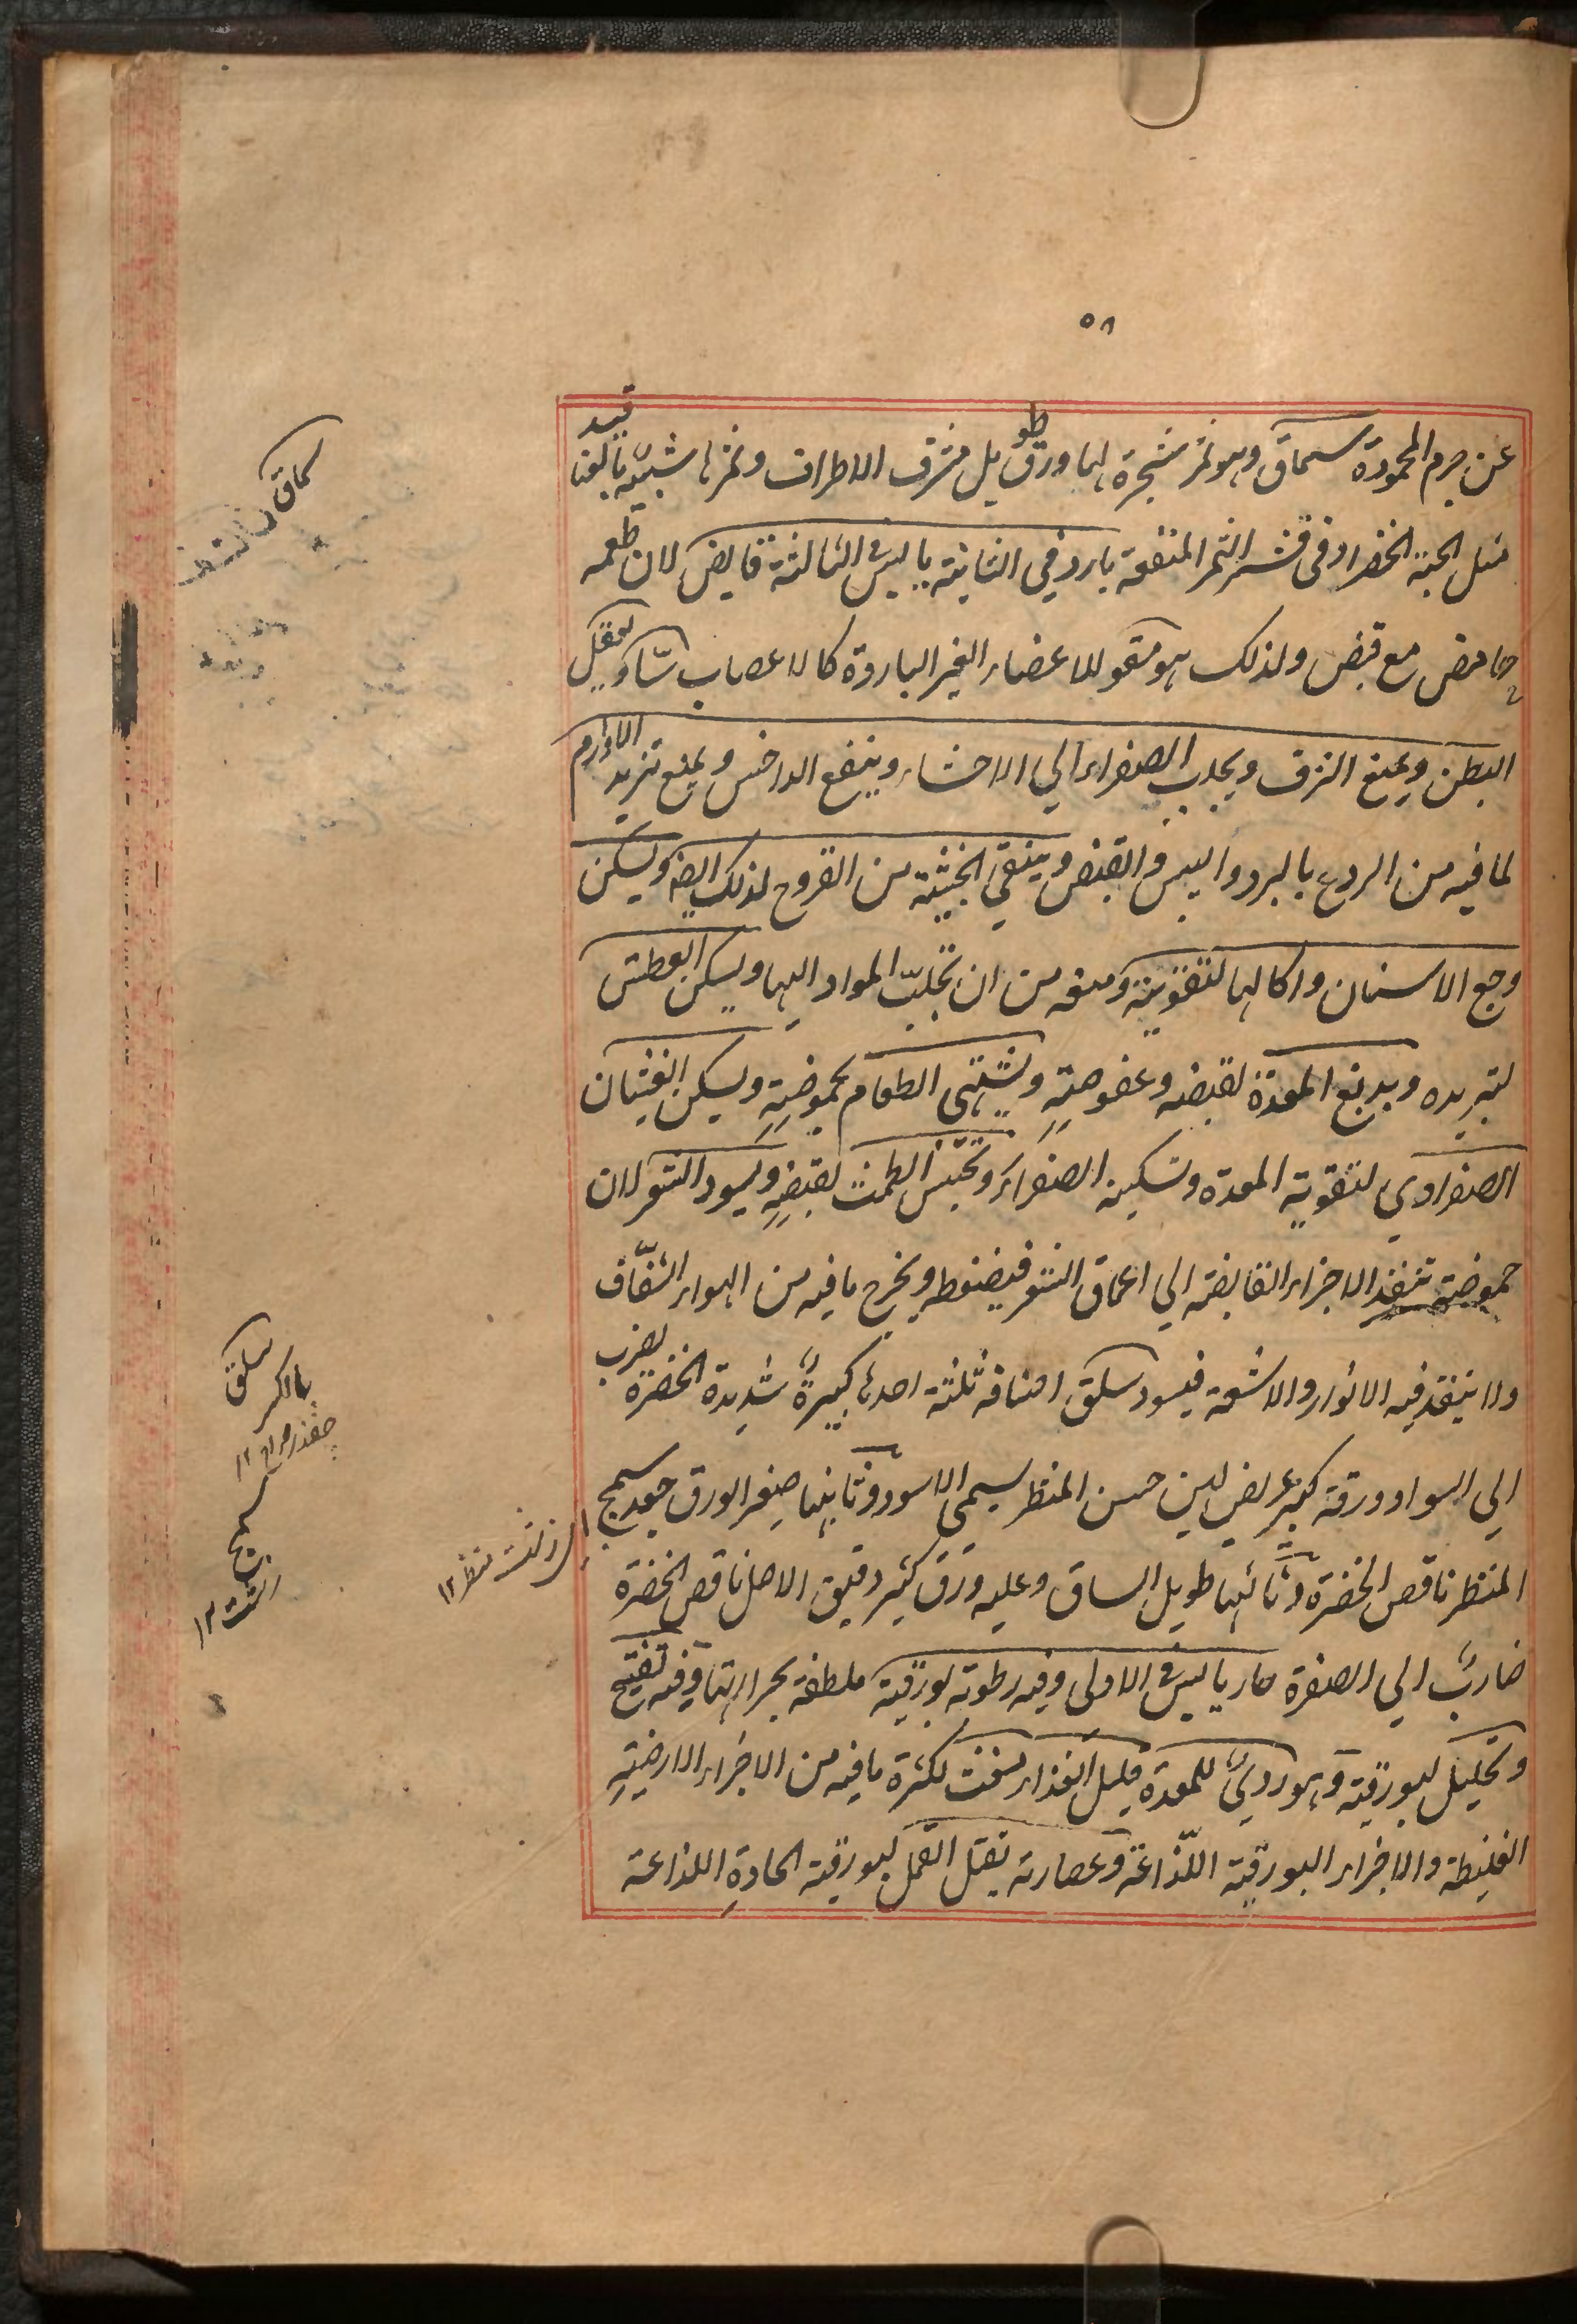 ٥٨
عن جرم المحمودة سماق وهو ثمر شجرة لها ورق طويل مشرف الاطراف وثمرها شبيه بالعناقيد
مثل الحبة الخضراء وفي قشر الثمر المنفعة بارد في الثانية يابس في الثالثة قابض لان طعمه
حامض مع قبض ولذلك هو مقو للاعضاء الغير الباردة كالاعصاب شا ويعقل
البطن ويمنع النزف ويجلب الصفراء الي الاحشاء وينفع الداخس ويمنع تزيد الاورام
لما فيه من الردع بالبرد واليبس والقبض وينقي الخبيثة من القروح لذلك ايضه ويسكن
وجع الاسنان واكالها لتقويته ومنعه من ان تجلب المواد اليها ويسكن العطش
لتبريده ويدبغ المعدة لقبضه وعفوصته ويشتهي الطعام بحموضته ويسكن الغثيان
الصفراوي لتقوية المعدة وتسكينه الصفراء ويحتبس الطمث لقبضه ويسود الشعر لان
حموضته تنفذ الاجزاء القابضة الي اعماق الشعر فيضغطه ويخرج ما فيه من الهواء الشفاف
ولا ينفذ فيه الانوار والاشعة فيسود سلق اصنافه ثلثة احدها كبيرة شديدة الخضرة يضرب
الي السواد وورقه كبير عريض لين حسن المنظر يسمي الاسود وثانيها صغير الورق جعد سمج
المنظر ناقص الخضرة وثالثها طويل الساق وعليه ورق كثير دقيق الاصل ناقص الخضرة
ضارب الي الصفرة حار يابس في الاولى وفيه رطوبة بورقية ملطفة بحرارتها وفيه تفتيح
وتحليل لبورقيته وهو رديء للمعدة قليل الغذاء مغث لكثرة ما فيه من الاجزاء الارضية
الغليظة والاجزاء البورقية اللذاعة وعصارته يقتل القمل لبورقيته الحادة اللذاعة
سماق
سلق
پالک
چقندر ١٢
سمج
زشت ١٢
اى زشت منظر ١٢